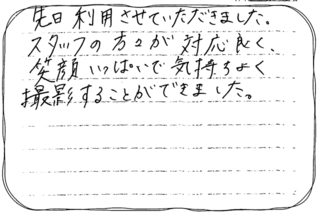 先日利用させていただきました。
スタッフの方々が対応良く、
笑顔いっぱいで気持ちよく
撮影することができました。